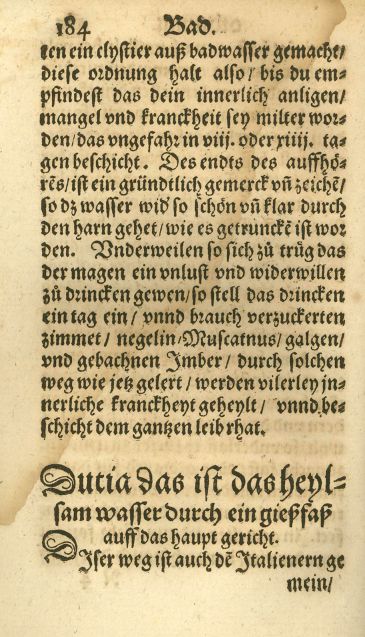 184 Bad.
ten ein clystier auß badwasser gemacht/
diese ordnung halt also/ bis du em⸗
pfindest das dein innerlich anligen/
mangel vnd kranckheit sey milter wor⸗
den/das vngefahr in viij. oder xiiij. ta⸗
gen beschicht. Des endts des auffhö⸗
rēs/ist ein gründtlich gemerck vn̄ zeichē/
so dz wasser wid' so schön vn̄ klar durch
den harn gehet/wie es getrunckē ist wor
den. Vnderweilen so sich zů trüg das
der magen ein vnlust vnd widerwillen
zů drincken gewen/so stell das drincken
ein tag ein/ vnnd brauch verzuckerten
zimmet/ negelin/Muscatnus/ galgen/
vnd gebachnen Imber/ durch solchen
weg wie jetz gelert/ werden vilerley jn⸗
nerliche kranckheyt geheylt/ vnnd be⸗
schicht dem gantzen leib rhat.
Dutia das ist das heyl⸗
sam wasser durch ein gießfaß
auff das haupt gericht.
DIser weg ist auch dē Italienern ge
mein/